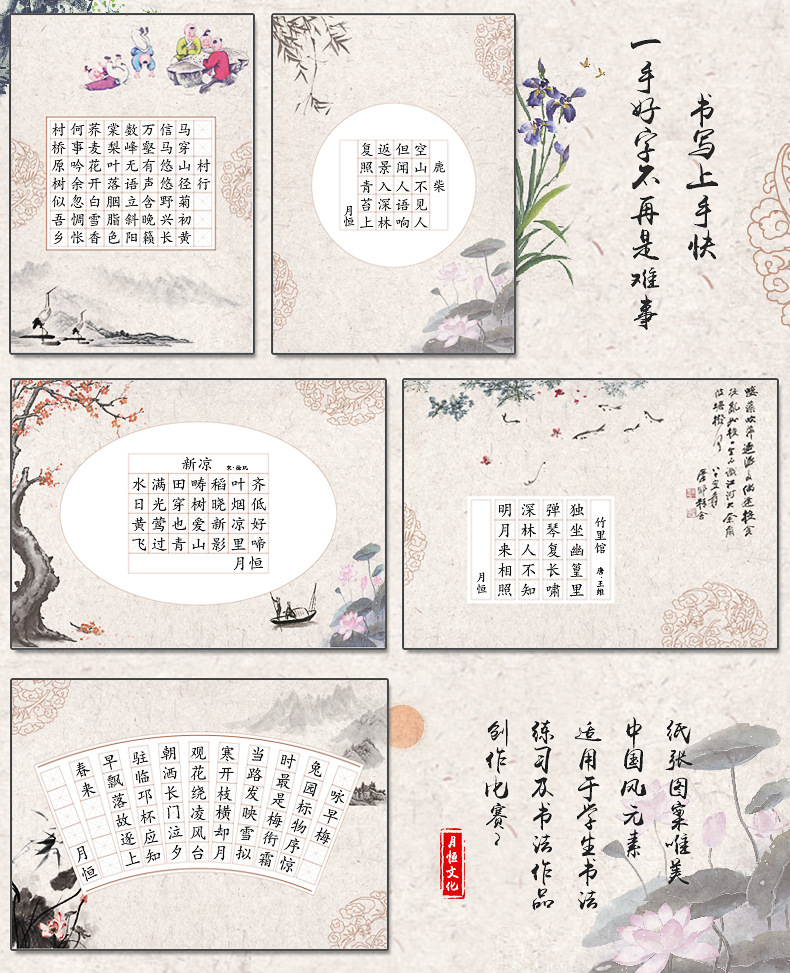 村行
马穿山径菊初黄
信马悠悠野兴长
万壑有声含晚籁
数峰无语立斜阳
棠梨叶落胭脂色
荞麦花开白雪香
何事吟余忽惆怅
村桥原树似吾乡
鹿柴
空山不见人
但闻人语响
返景入深林
复照青苔上
月恒
书写上手快
一手好字不再是难事
新凉 宋·徐玑
水满田畴稻叶齐
日光穿树晓烟低
黄莺也爱新凉好
飞过青山影里啼
月恒
竹里馆 唐 王维
独坐幽篁里
弹琴复长啸
深林人不知
明月来相照
月恒
咏早梅
兔园标物序惊
时最是梅衔霜
当路发映雪拟
寒开枝横却月
观花绕凌风台
朝洒长门泣夕
驻临邛杯应知
早飘落故逐上
春来
月恒
纸张图案唯美
中国风元素
适用于学生书法
练习及书法作品
创作比赛
月恒文化